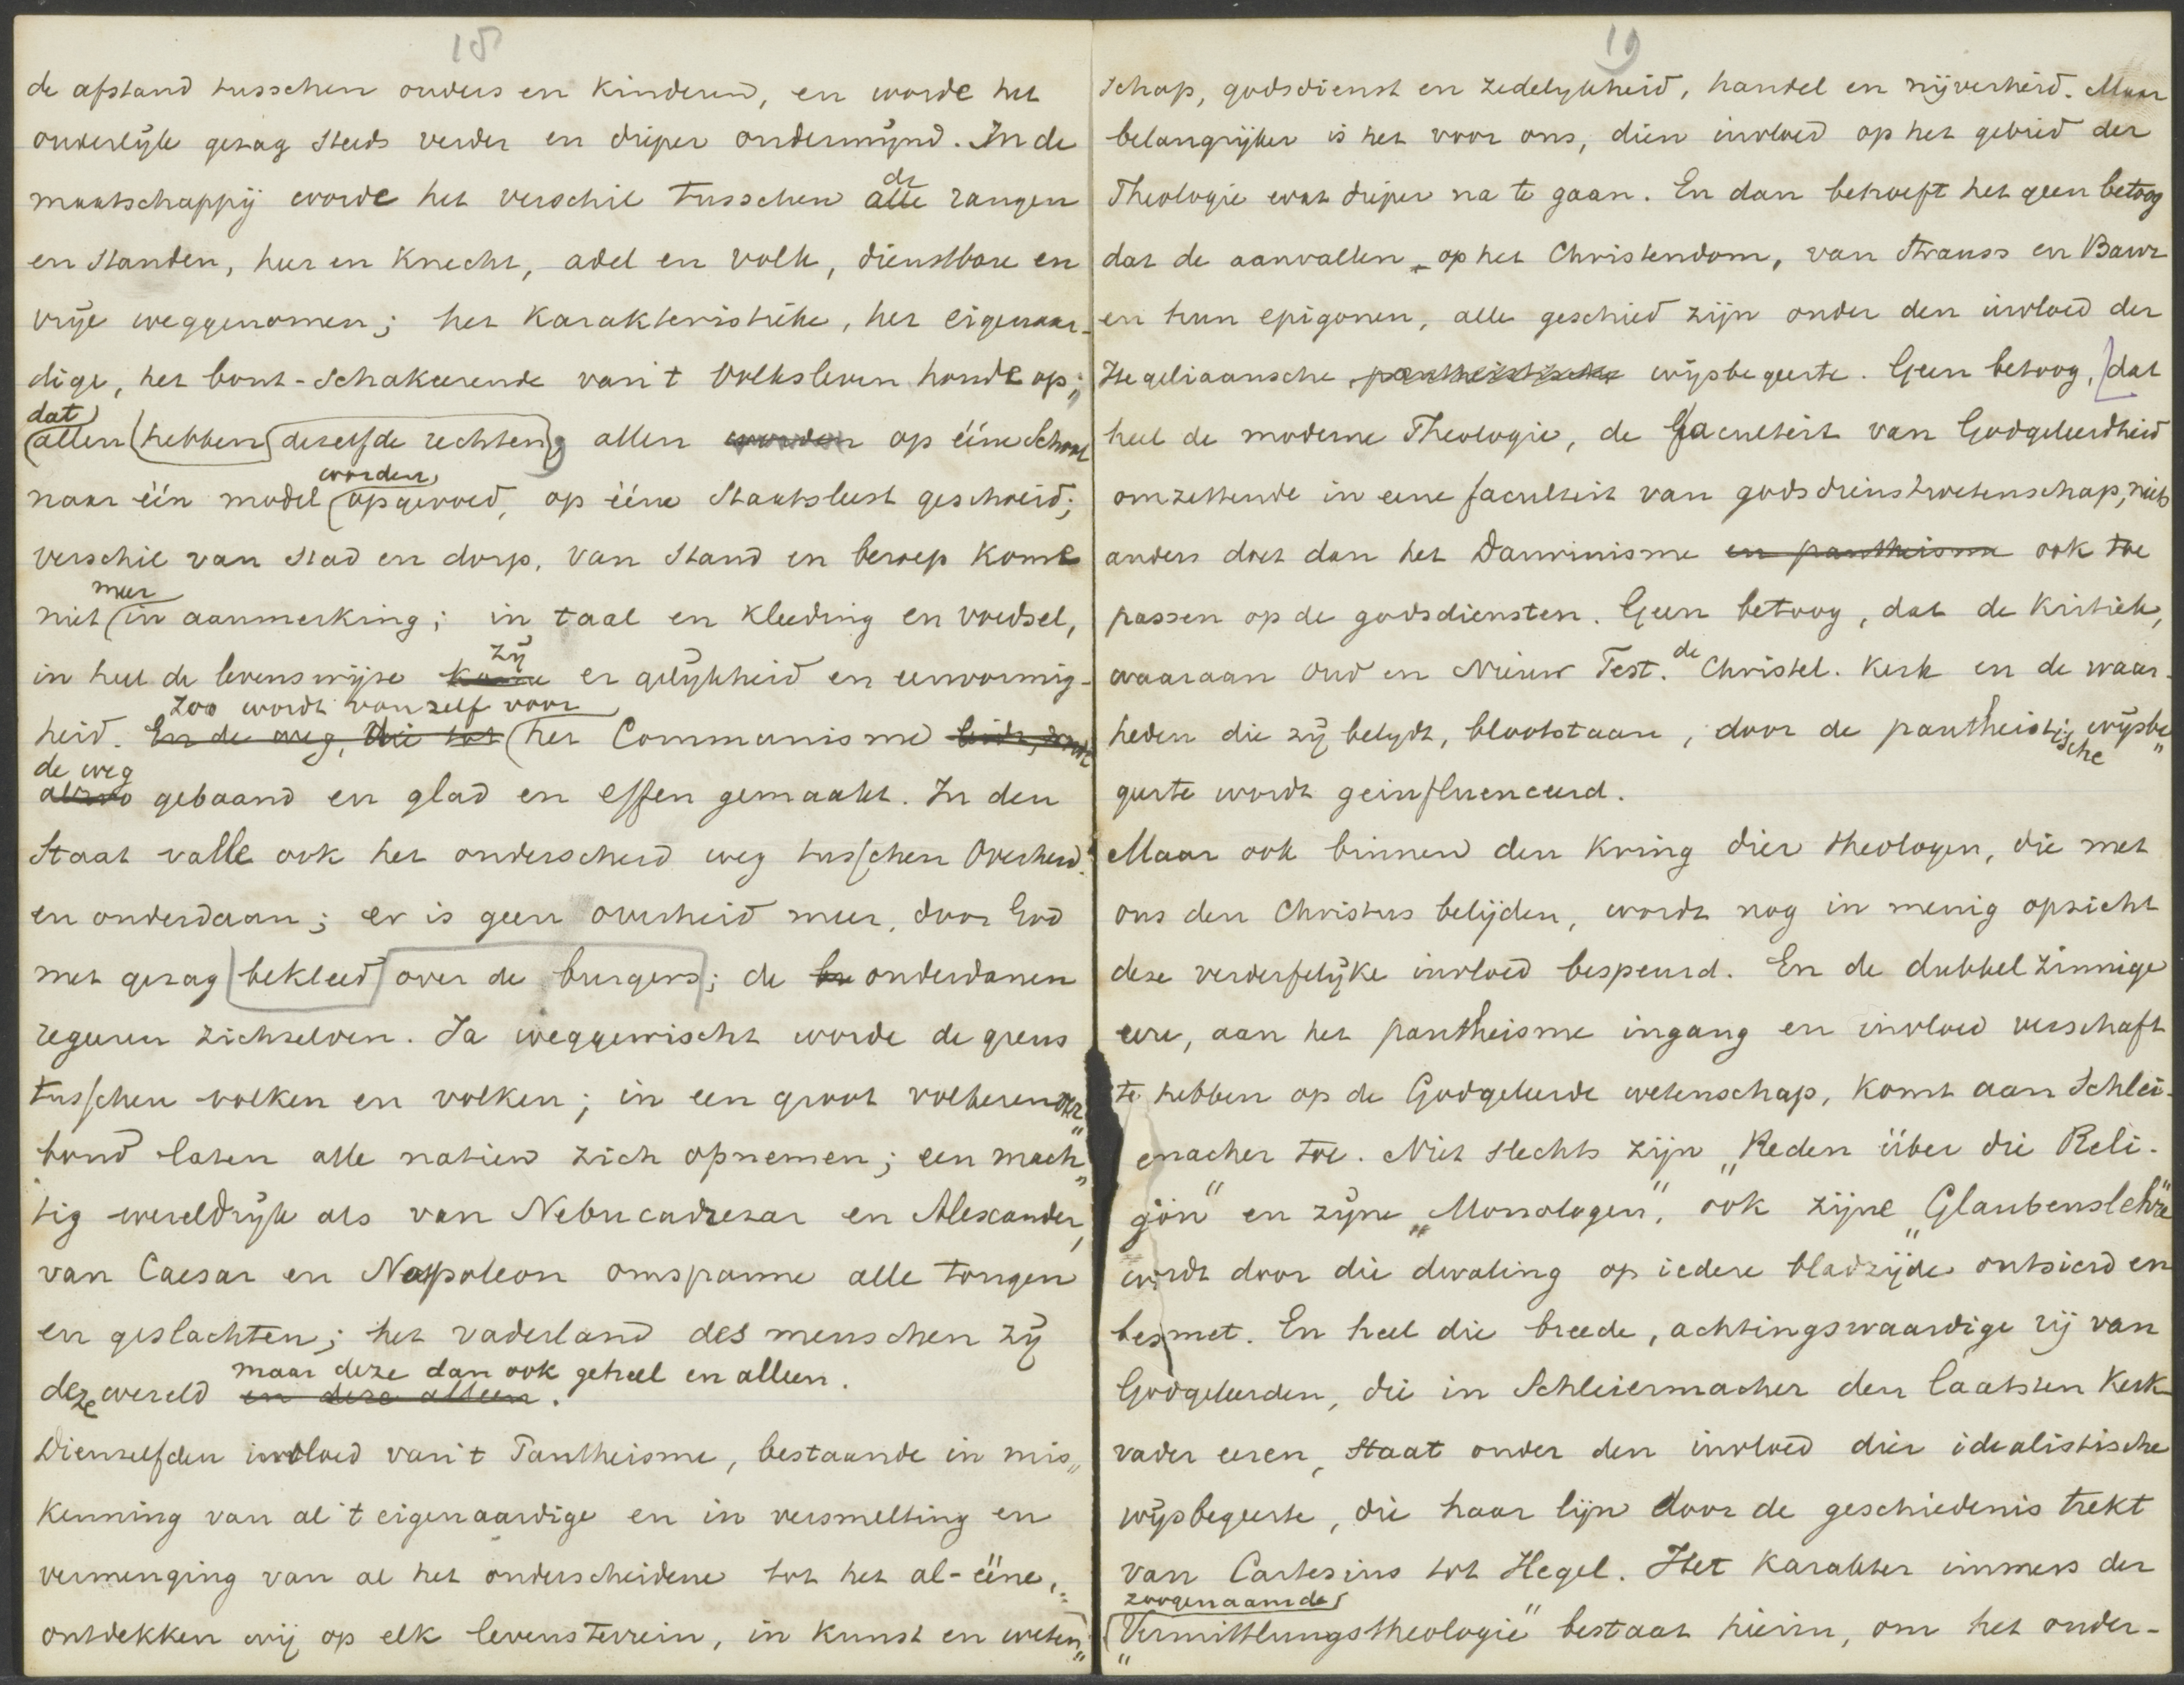 18
de afstand tusschen ouders en kinderen, en worde het
ouderlijk gezag steeds verder en dieper ondermijnd. In de
de
maatschappij worde het verschil tusschen alle rangen
en standen, heer en knecht, adel en volk, dienstbare en
vrije weggenomen; het karakteristieke, het eigenaar-
dige, het bont-schakeerende van 't volksleven houde op;
dat
allen hebben dezelfde rechten, allen worden op ééne School
worden
naar één model opgevoed, op ééne Staatsleest geschoeid;
verschil van stad en dorp, van stand en beroep kome
meer
niet in aanmerking; in taal en kleeding en voedsel,
zij
in heel de levenswijze kome er gelijkheid en eenvormig-
zoo wordt vanzelf voor
heid. En de weg, die tot het Communisme leidt, wordt
de weg
alzoo gebaand en glad en effen gemaakt. In den
Staat valle ook het onderscheid weg tusschen Overheid
en onderdaan; er is geen overheid meer, door God
met gezag bekleed over de burgers; de bu onderdanen
regeeren zichzelven. Ja weggewischt worde de grens
tusschen volken en volken; in een groot volkeren
bond laten alle natiën zich opnemen; een mach„
tig wereldrijk als van Nebucadrezar en Alexander,
van Caesar en Napoleon omspanne alle tongen
en geslachten; het vaderland des menschen zij
maar deze dan ook geheel en alleen.
deze wereld en deze alleen.
Dienzelfden invloed van 't Pantheisme, bestaande in mis„
kenning van al 't eigenaardige en in versmelting en
vermenging van al het onderscheidene tot het al-ééne,
ontdekken wij op elk levensterrein, in kunst en weten„
19
schap, godsdienst en zedelijkheid, handel en nijverheid. Maar
belangrijker is het voor ons, dien invloed op het gebied der
Theologie wat dieper na te gaan. En dan behoeft het geen betoog
dat de aanvallen op het Christendom, van Strauss en Baur
en hun epigonen, alle geschied zijn onder den invloed der
Hegeliaansche pantheistische wijsbegeerte. Geen betoog, dat
heel de moderne Theologie, de faculteit van Godgeleerdheid
omzettende in eene faculteit van godsdienstwetenschap, niets
anders doet dan het Darwinisme en pantheisme ook toe
passen op de godsdiensten. Geen betoog, dat de kritiek,
de
waaraan Oud en Nieuw Test. Christel. kerk en de waar-
heden die zij belijdt, blootstaan, door de pantheistische wijsbe„
geerte wordt geinfluenceerd.
Maar ook binnen den kring dier theologen, die met
ons den Christus belijden, wordt nog in menig opzicht
deze verderfelijke invloed bespeurd. En de dubbelzinnige
eere, aan het pantheisme ingang en invloed verschaft
te hebben op de Godgeleerde wetenschap, komt aan Schlei-
ermacher toe. Niet slechts zijn „Reden über die Reli-
gion" en zijne „Monologen", ook zijne „Glaubenslehre"
wordt door die dwaling op iedere bladzijde ontsierd en
besmet. En heel die breede, achtingswaardige rij van
Godgeleerden, die in Schleiermacher den laatsten kerk-
vader eeren, staat onder den invloed dier idealistische
wijsbegeerte, die haar lijn door de geschiedenis trekt
van Cartesius tot Hegel. Het karakter immers der
zoogenaamde
„Vermittlungstheologie" bestaat hierin, om het onder-